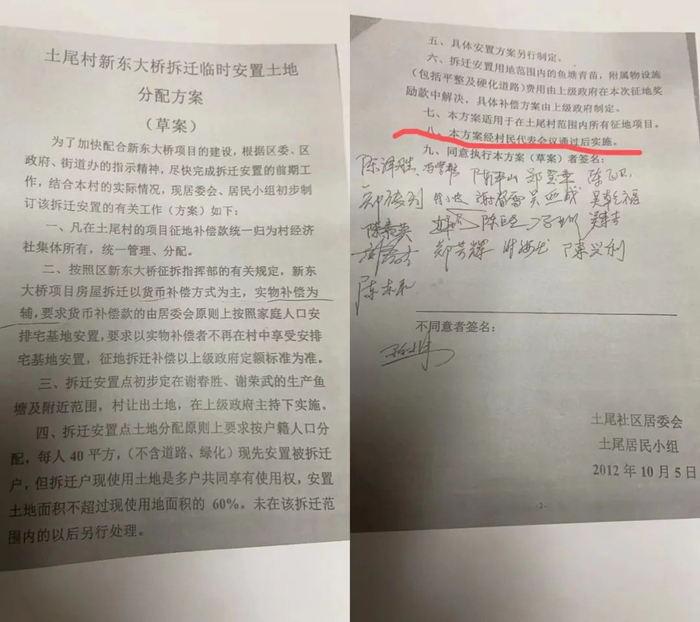 土尾村新东大桥拆迁临时安置土地
分配方案
（草案）
为了加快配合新东大桥项目的建设，根据区委、区
政府、街道办的指示精神，尽快完成拆迁安置的前期工
作，结合本村的实际情况，现居委会、居民小组初步制
订该拆迁安置的有关工作（方案）如下：
一、凡在土尾村的项目征地补偿款统一归为村经济
社集体所有，统一管理、分配。
二、按照区新东大桥征拆指挥部的有关规定，新东
大桥项目房屋拆迁以货币补偿方式为主，实物补偿为
辅，要求货币补偿款的由居委会原则上按照家庭人口安
排宅基地安置，要求以实物补偿者不再在村中享受安排
宅基地安置，征地拆迁补偿以上级政府定额标准为准。
三、拆迁安置点初步定在谢春胜、谢荣武的生产鱼
塘及附近范围，村让出土地，在上级政府主持下实施。
四、拆迁安置点土地分配原则上要求按户籍人口分
配，每人 40 平方，（不含道路、绿化）现先安置被拆迁
户，但拆迁户现使用土地是多户共同享有使用权，安置
土地面积不超过现使用地面积的 60%。未在该拆迁范
围内的以后另行处理。
五、具体安置方案另行制定。
六、拆迁安置用地范围内的鱼塘青苗，附属物设施
（包括平整及硬化道路）费用由上级政府在本次征地奖
励款中解决，具体补偿方案由上级政府制定。
七、本方案适用于在土尾村范围内所有征地项目。
八、本方案经村民代表会议通过后实施。
九、同意执行本方案（草案）者签名：
郑芳辉 陈兴利
不同意者签名：
土尾社区居委会
土尾居民小组
2012 年 10 月 5 日